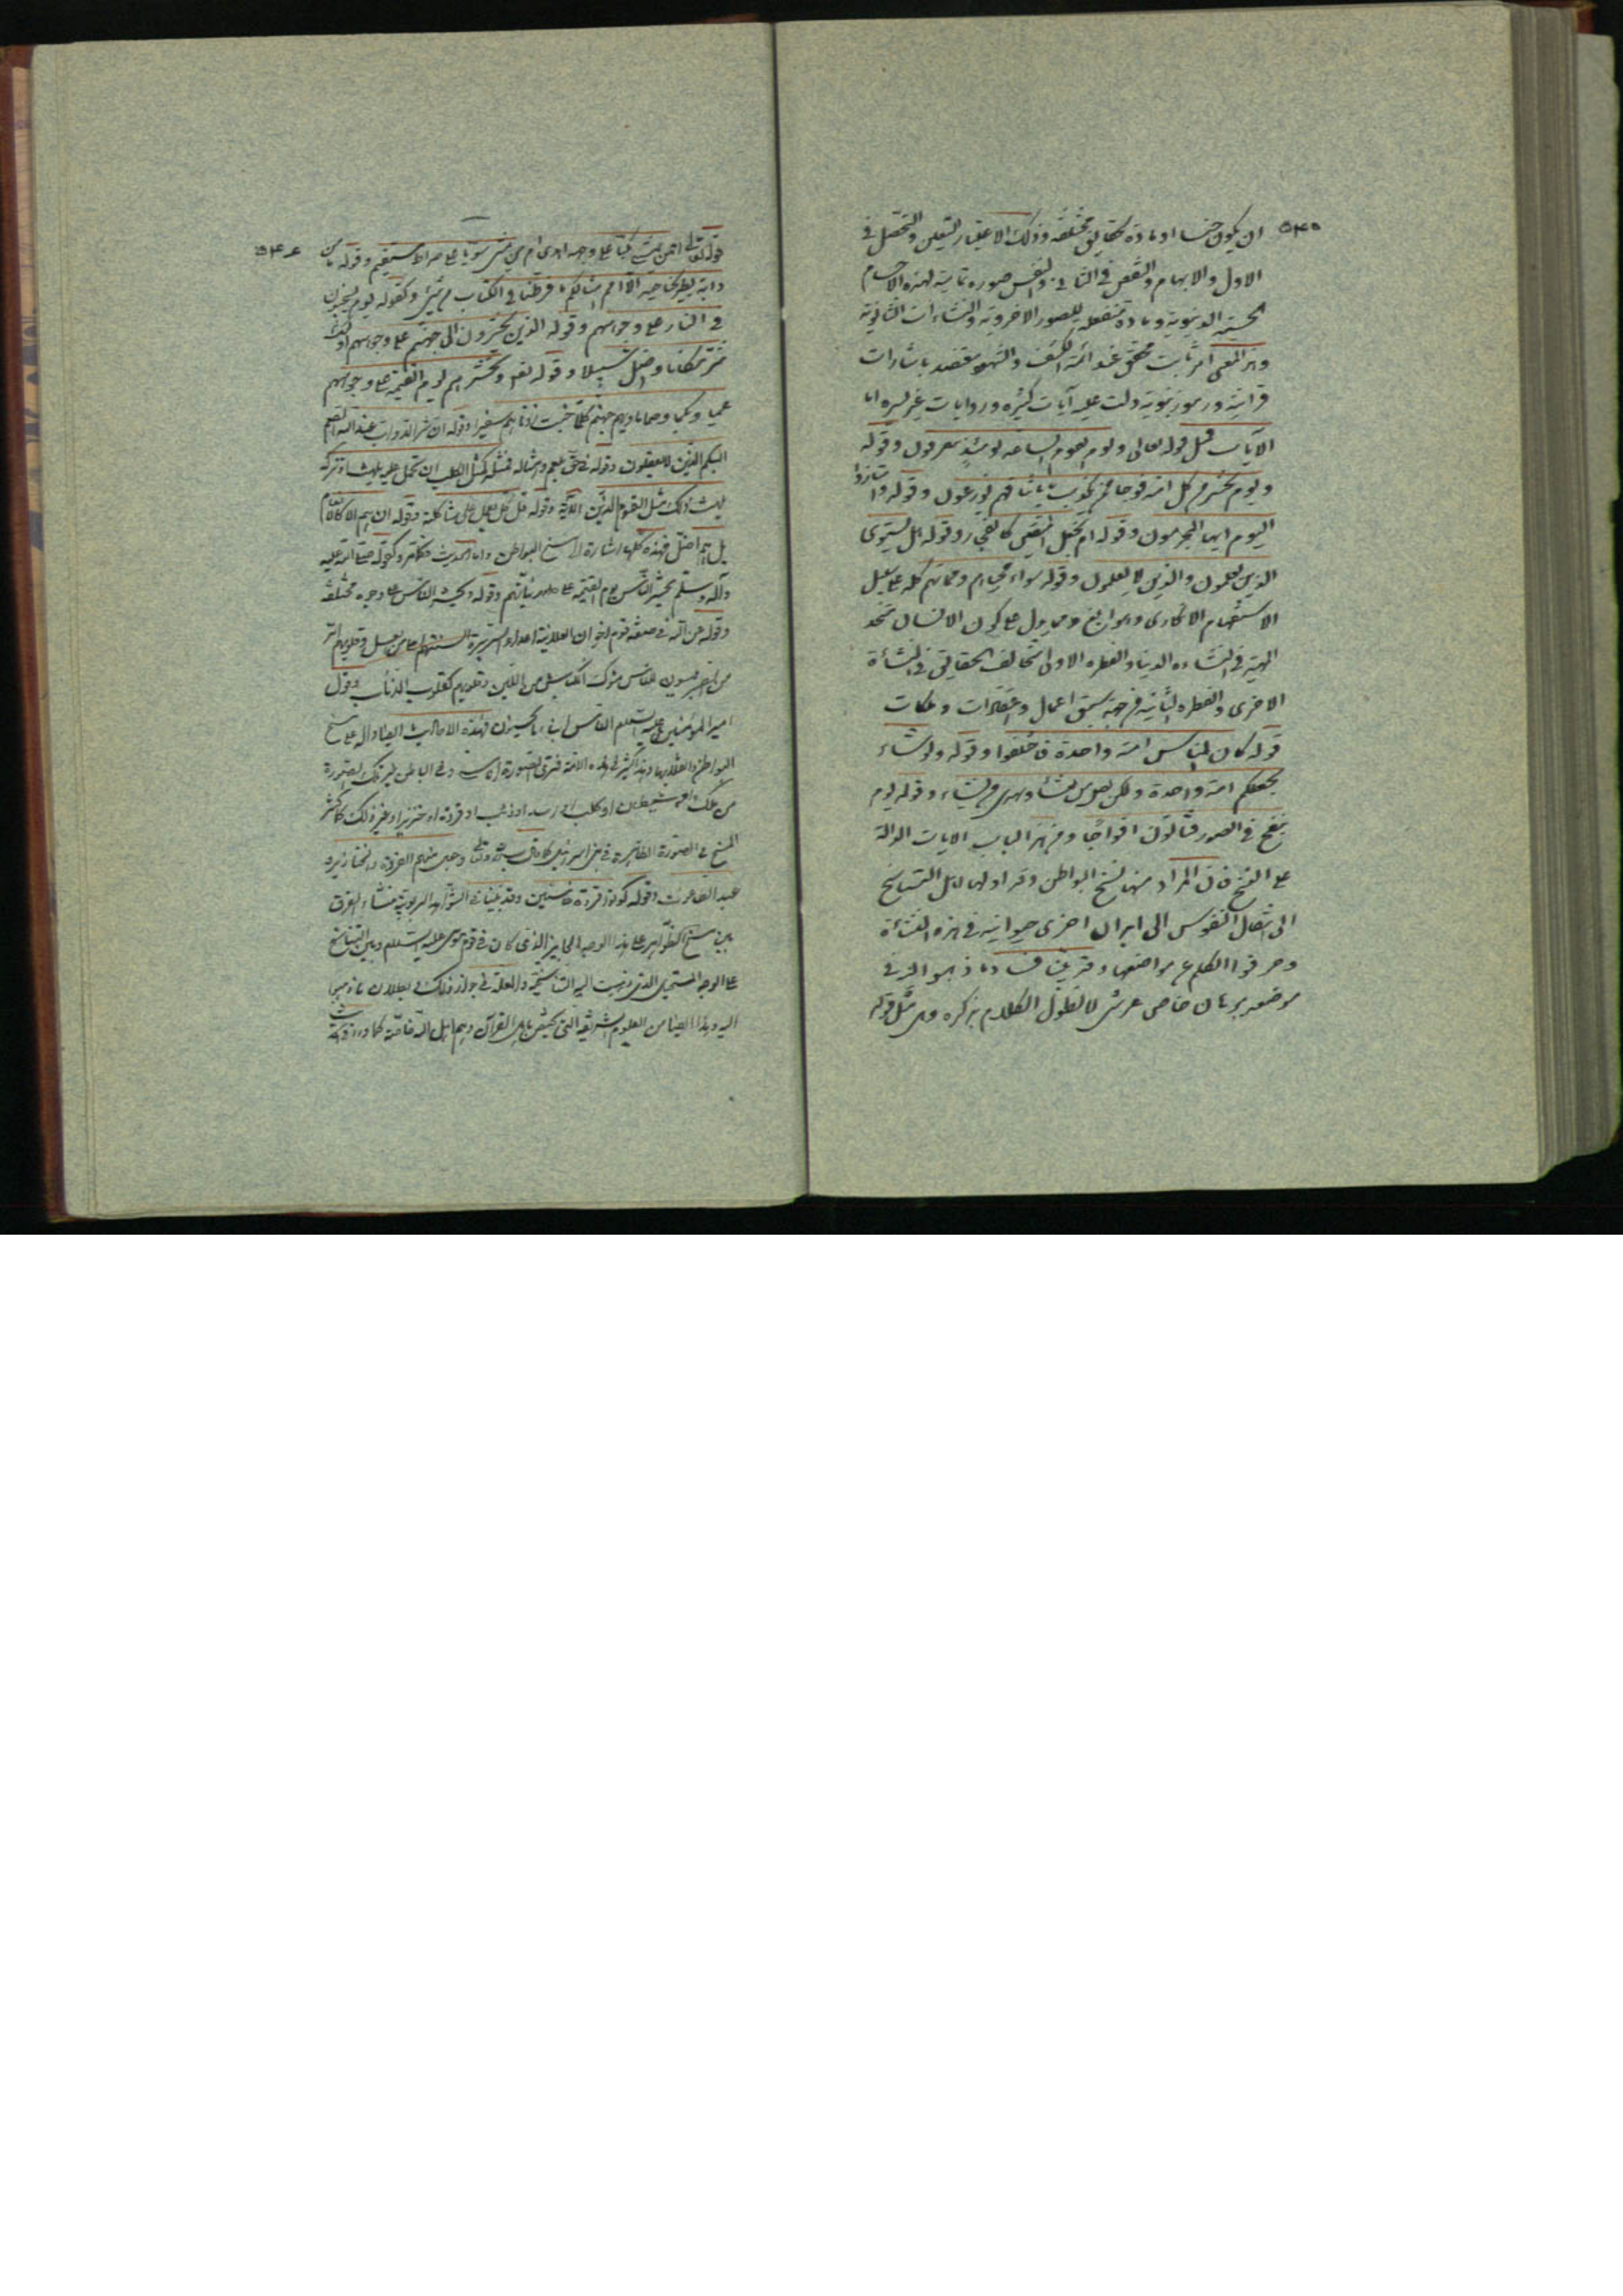 ٥٣٥
ان يكون جنسا او مادة لحقايق مختلفة وذلك الاعتبار التعين والتحصل في
الاول والابهام والنقص في الثاني والنفس صورة تمامية لهذه الاجسام
الحسية الدنيوية ومادة منفعلة للصور الاخروية والنشاءات الثانوية
وهذا المعنى امر ثابت محقق عند ائمة الكشف والشهود معتضد باشارات
قرآنية ورموز نبوية دلت عليه آيات كثيرة وروايات غير يسيرة اما
الآيات فمثل قوله تعالى ويوم تقوم الساعة يومئذ يتفرقون وقوله
ويوم نحشر من كل امة فوجا ممن يكذب بآياتنا فهم يوزعون وقوله وامتازوا
اليوم ايها المجرمون وقوله ام نجعل المتقين كالفجار وقوله هل يستوى
الذين يعلمون والذين لا يعلمون وقوله سواء محياهم ومماتهم كله على سبيل
الاستفهام الانكارى وهو ابلغ ومما يدل على كون الانسان متحد
المهية في النشاءة الدنيا والفطرة الاولى متخالف الحقايق في النشأة
الاخرى والفطرة الثانية من جهة سبق اعمال واعتقادات وملكات
قوله كان الناس امة واحدة فاختلفوا وقوله ولو شاء
لجعلكم امة واحدة ولكن يضل من يشاء ويهدى من يشاء وقوله يوم
ينفخ في الصور فتأتون افواجا ومن هذا الباب الآيات الدالة
على المسخ فان المراد منها مسخ البواطن وقد اولها اهل التناسخ
الى انتقال النفوس الى ابدان اخرى حيوانية في هذه النشأة
وحرفوا الكلم عن مواضعها وقد بين فساد ما ذهبوا اليه في
موضعه ببرهان خاص عرشى لا نطول الكلام بذكره وهى مثل قوله
٥٣٦
قوله تعالى افمن يمشى مكبا على وجهه اهدى ام من يمشى سويا على صراط مستقيم وقوله ما من
دابة يطير بجناحيه الا امم امثالكم ما فرطنا في الكتاب من شئ وكقوله يوم يسحبون
في النار على وجوههم وقوله الذين يحشرون الى جهنم على وجوههم اولئك
شر مكانا واضل سبيلا وقوله تعالى ونحشرهم يوم القيمة على وجوههم
عميا وبكما وصما مأويهم جهنم كلما خبت زدناهم سعيرا وقوله ان شر الدواب عند الله الصم
البكم الذين لا يعقلون وقوله في حق بلعم وامثاله فمثله كمثل الكلب ان تحمل عليه يلهث او تتركه
يلهث ذلك مثل القوم الذين الآية وقوله قل كل يعمل على شاكلته وقوله ان هم الا كالانعام
بل هم اضل فهذه كلها اشارة الى مسخ البواطن واما الحديث فكما مر وكقوله صلى الله عليه
وآله وسلم يحشر الناس يوم القيمة على نياتهم وقوله يحشر الناس على وجوه مختلفة
وقوله ص آله في صفة قوم اخوان العلانية اعداء السريرة السنتهم احلى من العسل وقلوبهم امر
من الصبر يلبسون للناس مسوك الكباش من اللين وقلوبهم كقلوب الذئاب وقول
امير المؤمنين عليه السلام الناس ابناء ما يحسنون فهذه الاحاديث ايضا دالة على مسخ
البواطن وانقلابها وهذا كثير في هذه الامة فترى الصورة اناسية وفي الباطن غير تلك الصورة
من ملك او شيطان او كلب او اسد او ذئب او قردة او خنزير او غير ذلك كما كثر
المسخ في الصورة الظاهرة في بنى اسرائيل كما قال سبحانه وتعالى وجعل منهم القردة والخنازير و
عبد الطاغوت وقوله كونوا قردة خاسئين وقد بينا في الشواهد الربوبية منشاء الفرق
بين مسخ الظواهر على هذا الوجه الجايز الذى كان في قوم موسى عليه السلام وبين التناسخ
على الوجه المستحيل الذى ذهبت اليه التناسخية والعلة في جواز ذلك وبطلان ما ذهبوا
اليه وهذا ايضا من العلوم الشريفة التى يختص باهل القرآن وهم اهل الله خاصة كما ورد